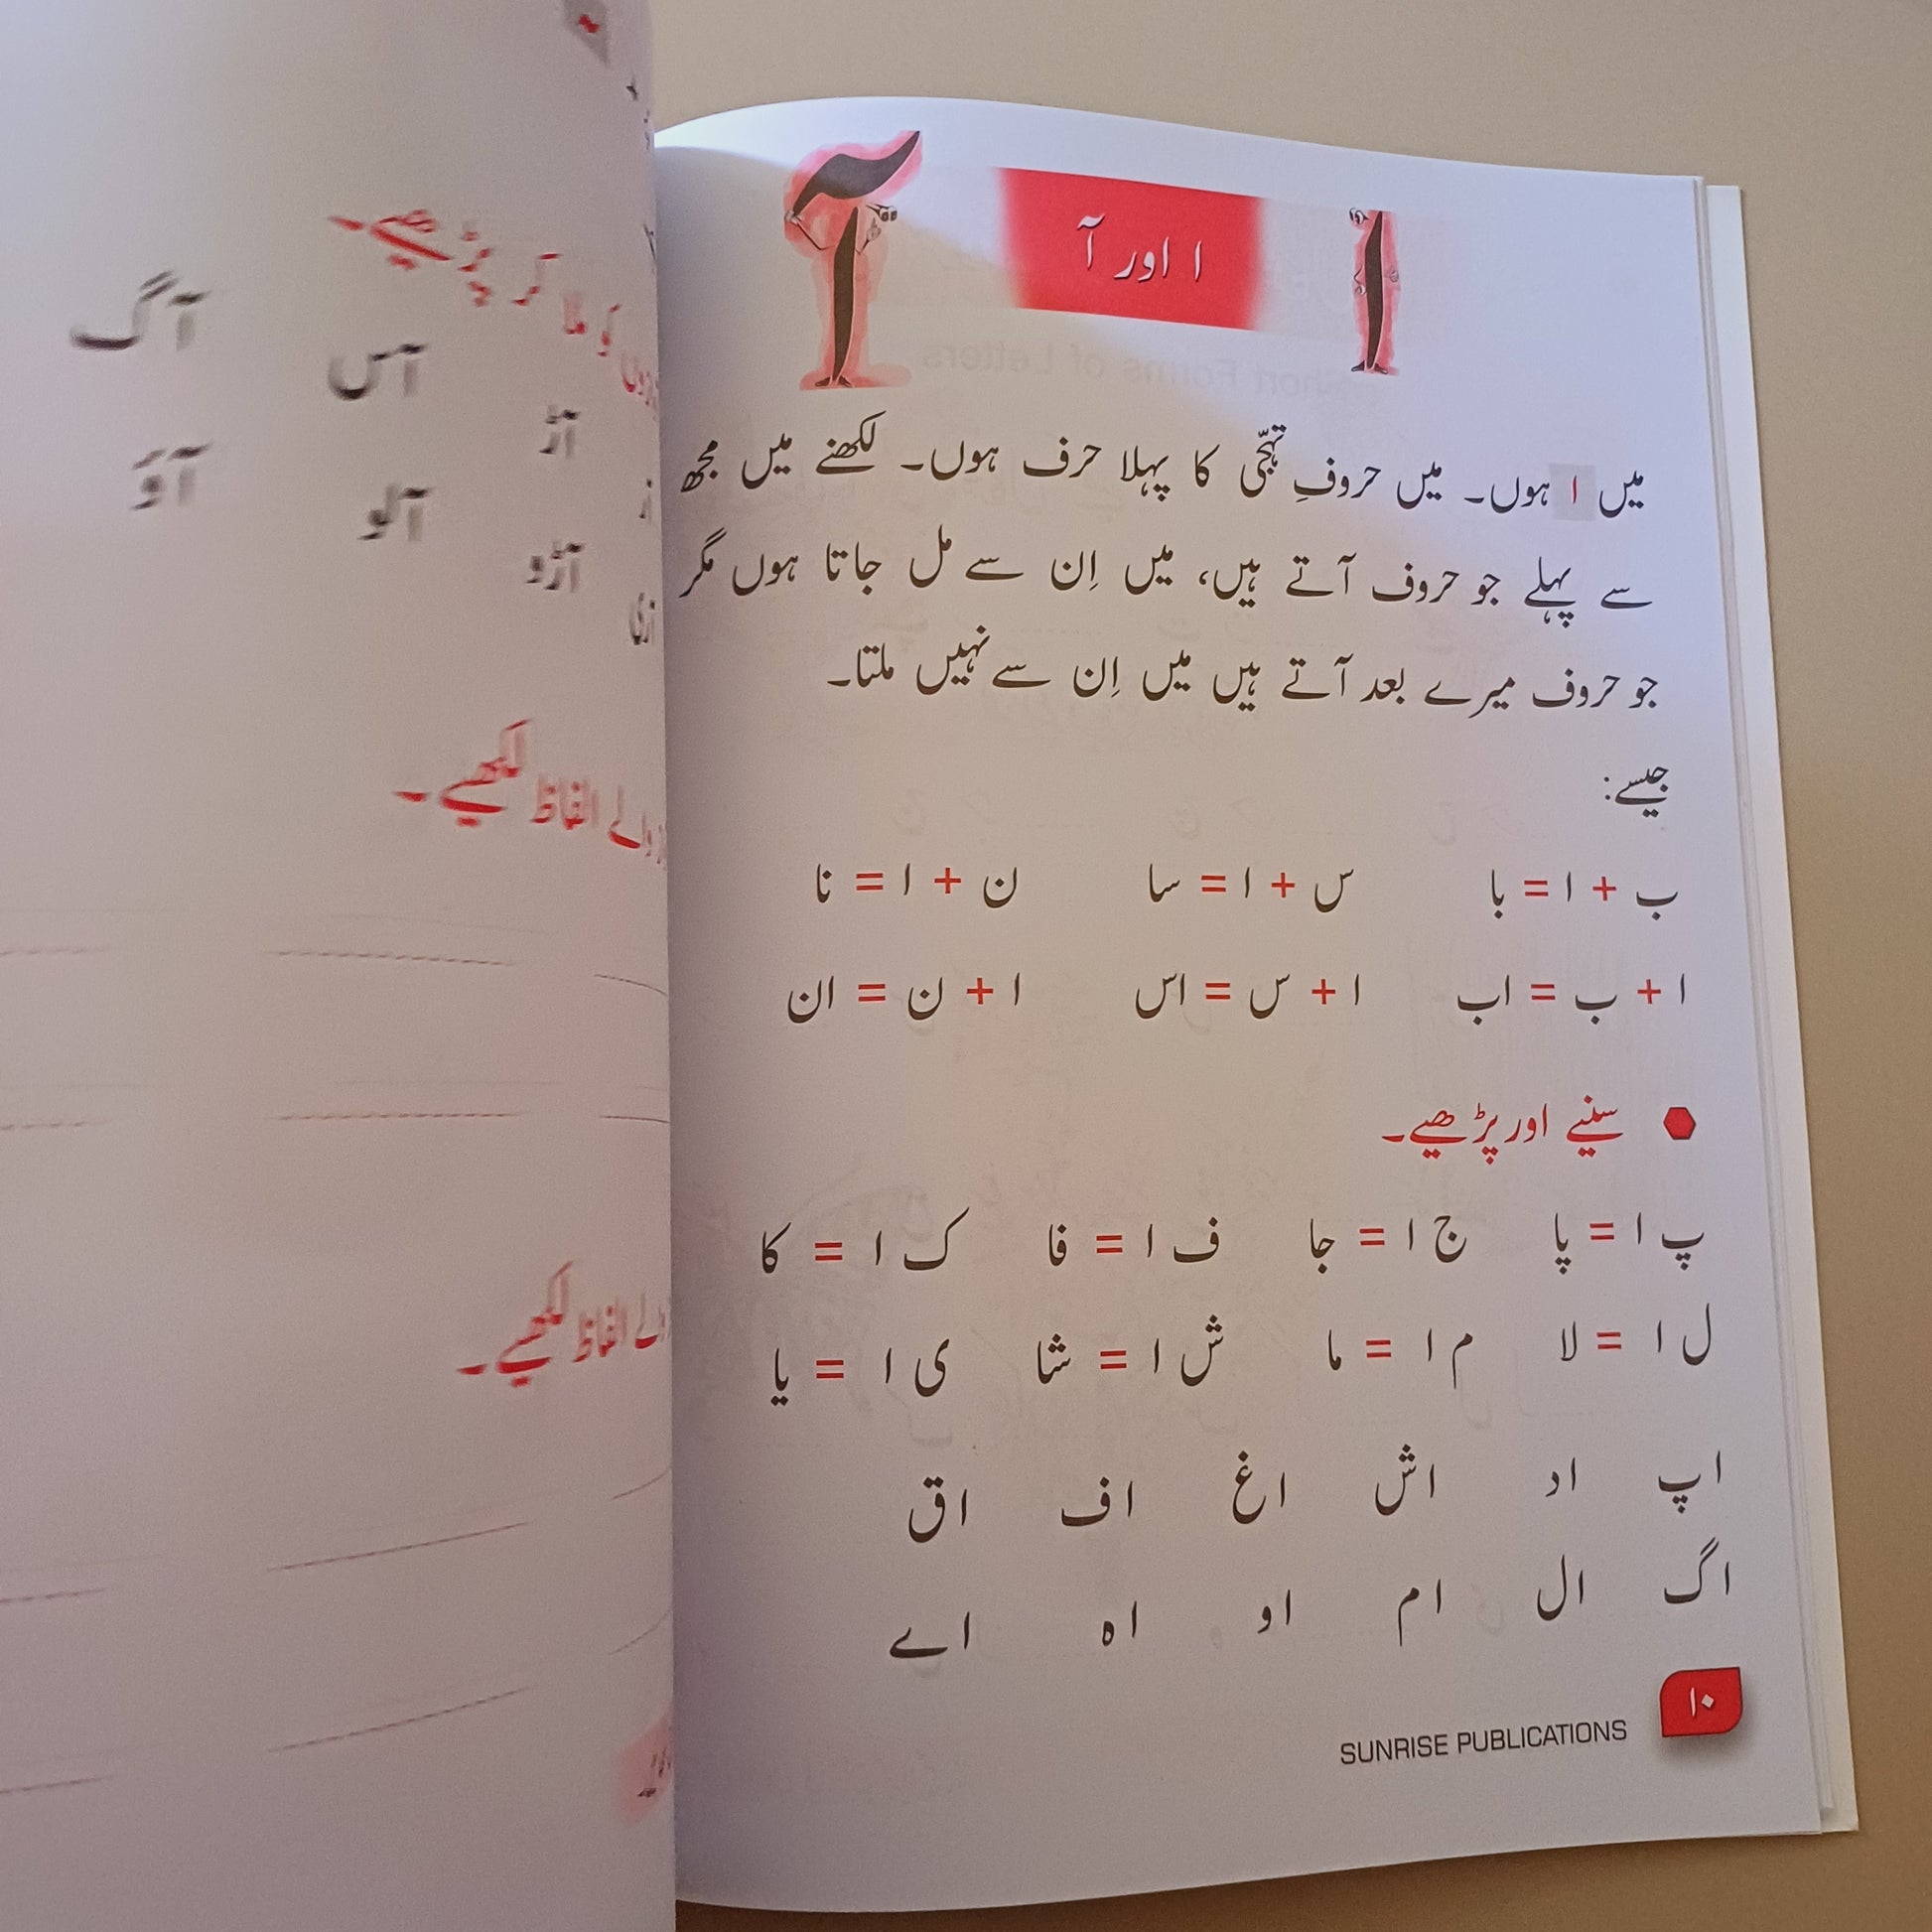 ا اور آ
میں ا ہوں۔ میں حروفِ تہجّی کا پہلا حرف ہوں۔ لکھنے میں مجھ
سے پہلے جو حروف آتے ہیں، میں اِن سے مل جاتا ہوں مگر
جو حروف میرے بعد آتے ہیں میں اِن سے نہیں ملتا۔
جیسے:
ب + ا = با س + ا = سا ن + ا = نا
ا + ب = اب ا + س = اس ا + ن = ان
سنیے اور پڑھیے۔
پ ا = پا ج ا = جا ف ا = فا ک ا = کا
ل ا = لا م ا = ما ش ا = شا ی ا = یا
اپ اد اش اغ اف اق
اگ ال ام او اہ اے
۱۰
SUNRISE PUBLICATIONS
کو ملا کر پڑھیے۔
آڑ آس آگ
آڑو آلو آؤ
والے الفاظ لکھیے۔
والے الفاظ لکھیے۔